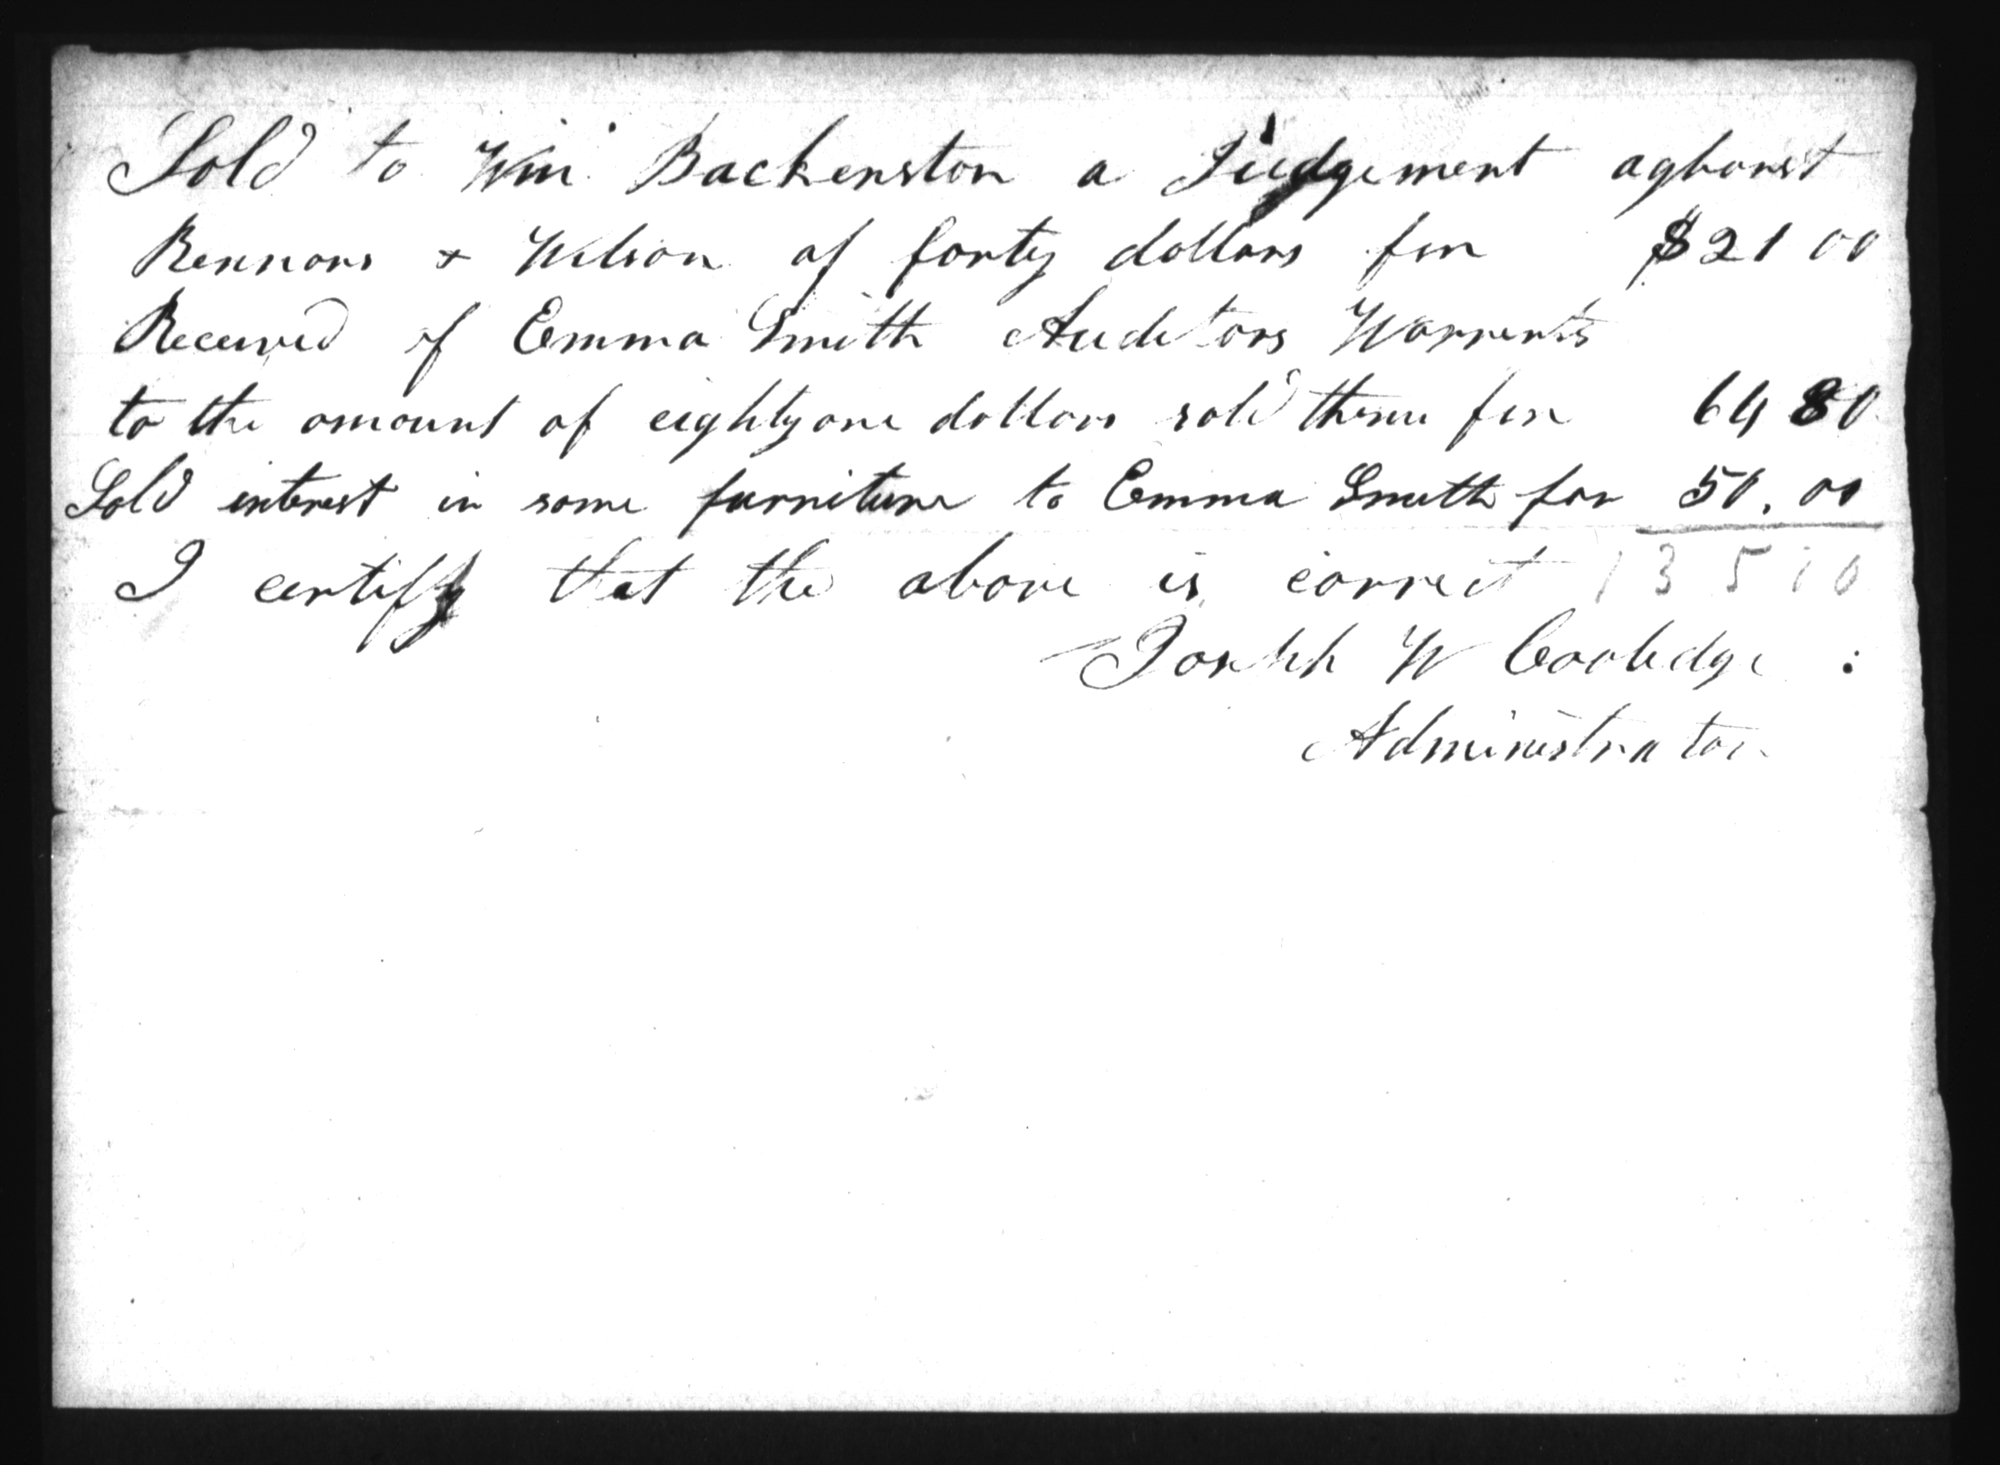 Sold to Wm Backenston a Judgement aghanst
Rennons + Wilson of forty dollars for $21 00
Received of Emma Smith Auditors Warrents
to the amount of eightyone dollars sold them for 64 80
Sold interest in some furniture to Emma Smith for 50.00
I certify that the above is correct 135 10
Joseph W Coolidge :
Administrator